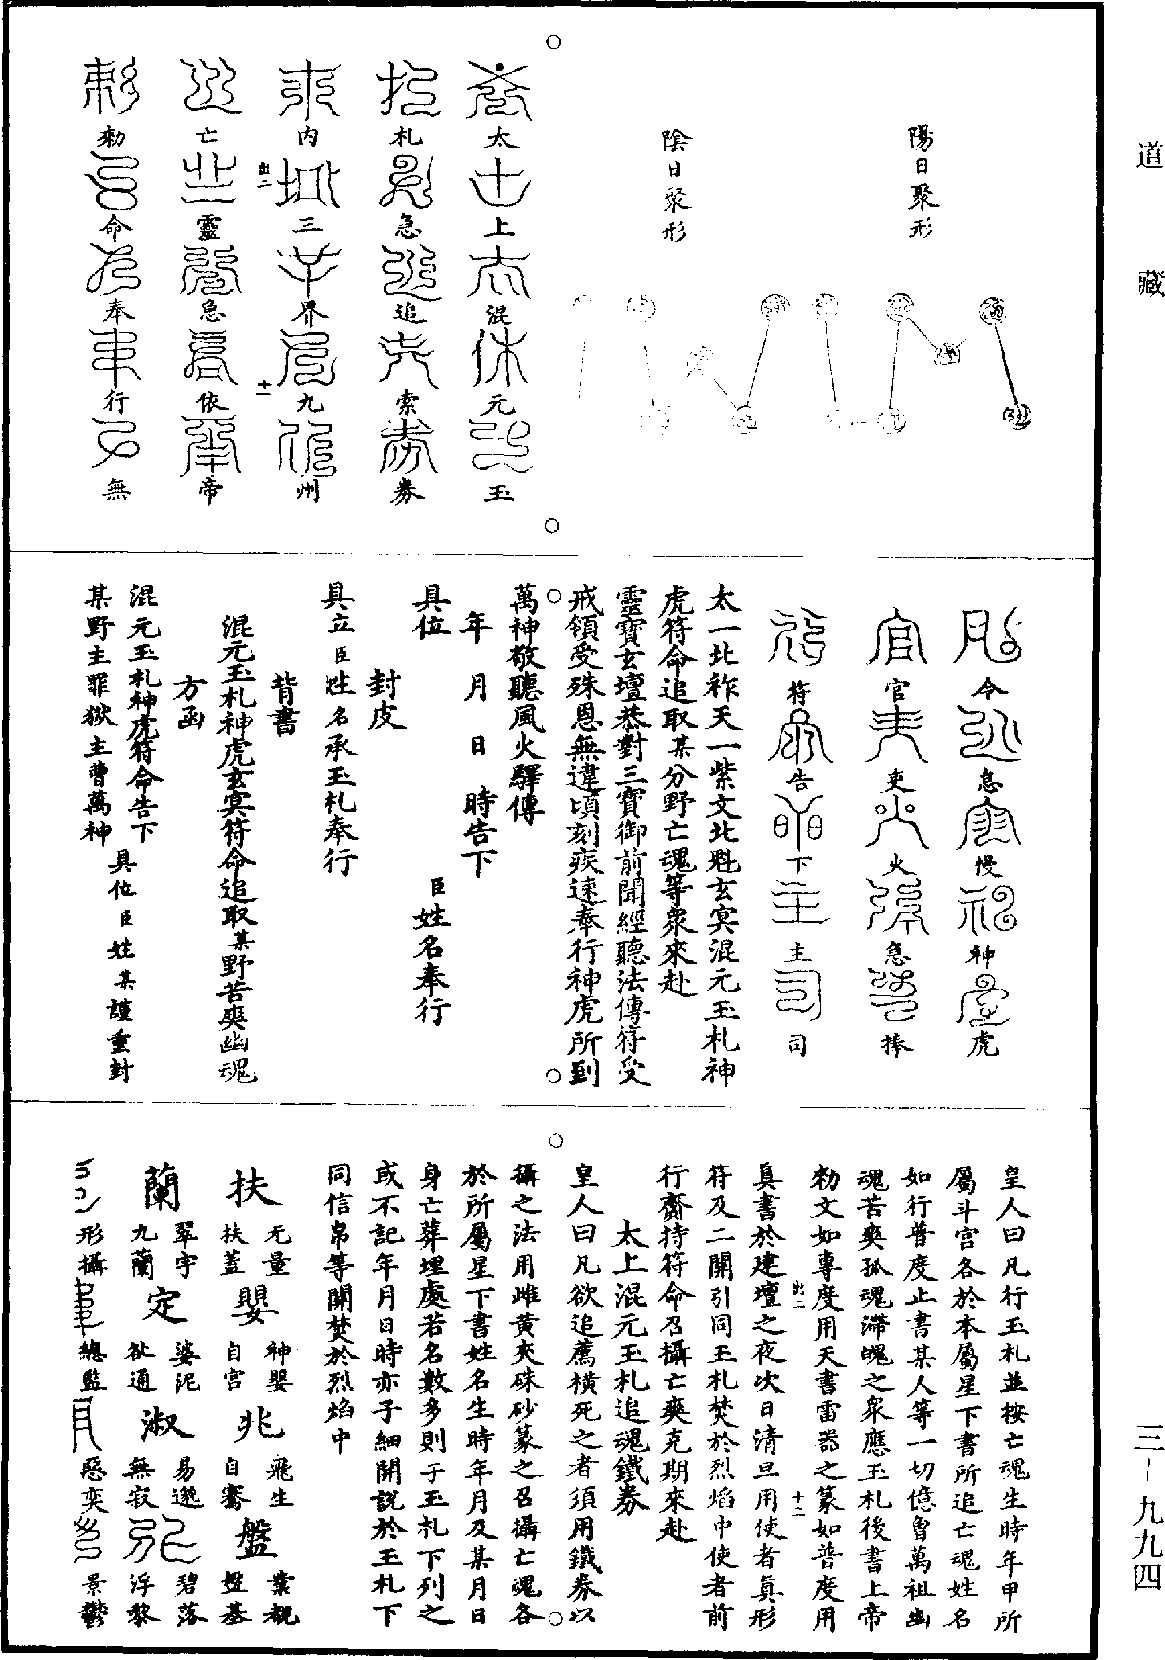 道藏
三一九九四
陽日聚形
陰日聚形
太上混元玉
札急追索券
内三界九州
亡靈急依帝
勅命奉行無
令急慢神虎
官吏火急捧
符告下主司
太一北祚天一紫文北魁玄冥混元玉札神
虎符命追取某分野亡魂等衆來赴
靈寶玄壇恭對三寶御前聞經聽法傳符受
戒領受殊恩無違頃刻疾速奉行神虎所到
萬神敬聽風火驛傳
年月日時告下
具位臣姓名奉行
封皮
具立臣姓名承玉札奉行
背書
混元玉札神虎玄冥符命追取某野苦爽幽魂
方函
混元玉札神虎符命告下
某野主罪獄主曹萬神
具位臣姓某謹重封
皇人曰凡行玉札並按亡魂生時年甲所
屬斗宫各於本屬星下書所追亡魂姓名
如行普度止書某人等一切億曾萬祖幽
魂苦爽孤魂滯魄之衆應玉札後書上帝
勅文如專度用天書雷器之篆如普度用
真書於建壇之夜次日清旦用使者真形
符及二關引同玉札焚於烈焰中使者前
行齎持符命召攝亡爽克期來赴
太上混元玉札追魂鐵券
皇人曰凡欲追薦横死之者須用鐵券以
攝之法用雌黄夾硃砂篆之召攝亡魂各
於所屬星下書姓名生時年月及某月日
身亡葬埋處若名數多則于玉札下列之
或不記年月日時亦子細開説於玉札下
同信帛等關焚於烈焰中
扶 无量扶蓋 嬰 神嬰自宫 兆 飛生自騫 盤 業觀盤基
蘭 翠宇九蘭 定 婆泥欲通 淑 易邈無寂 碧落浮黎
形攝 總監 惡奕 景鬱